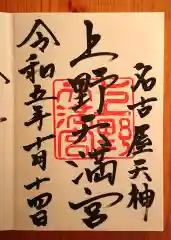 名古屋天神
上野天満宮
令和五年十月十四日